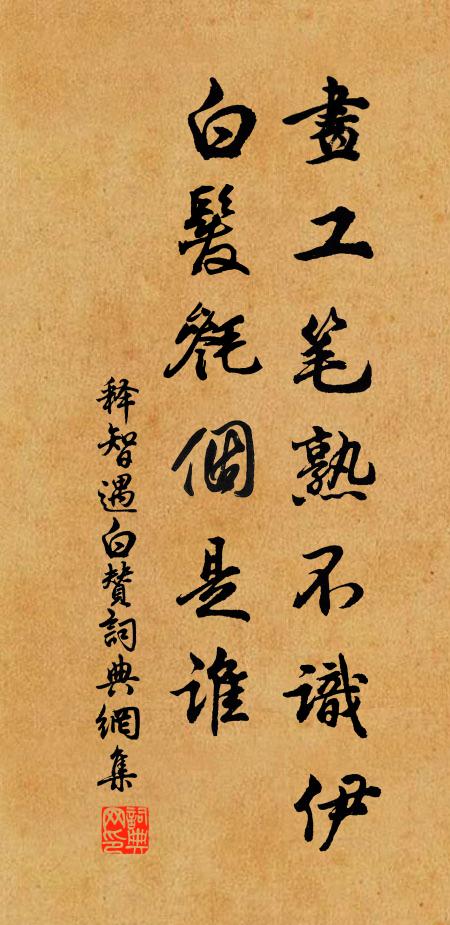 畫工笔熟不識伊
白髮毿個是誰
释智遇白賛詞典網集
詞典网印